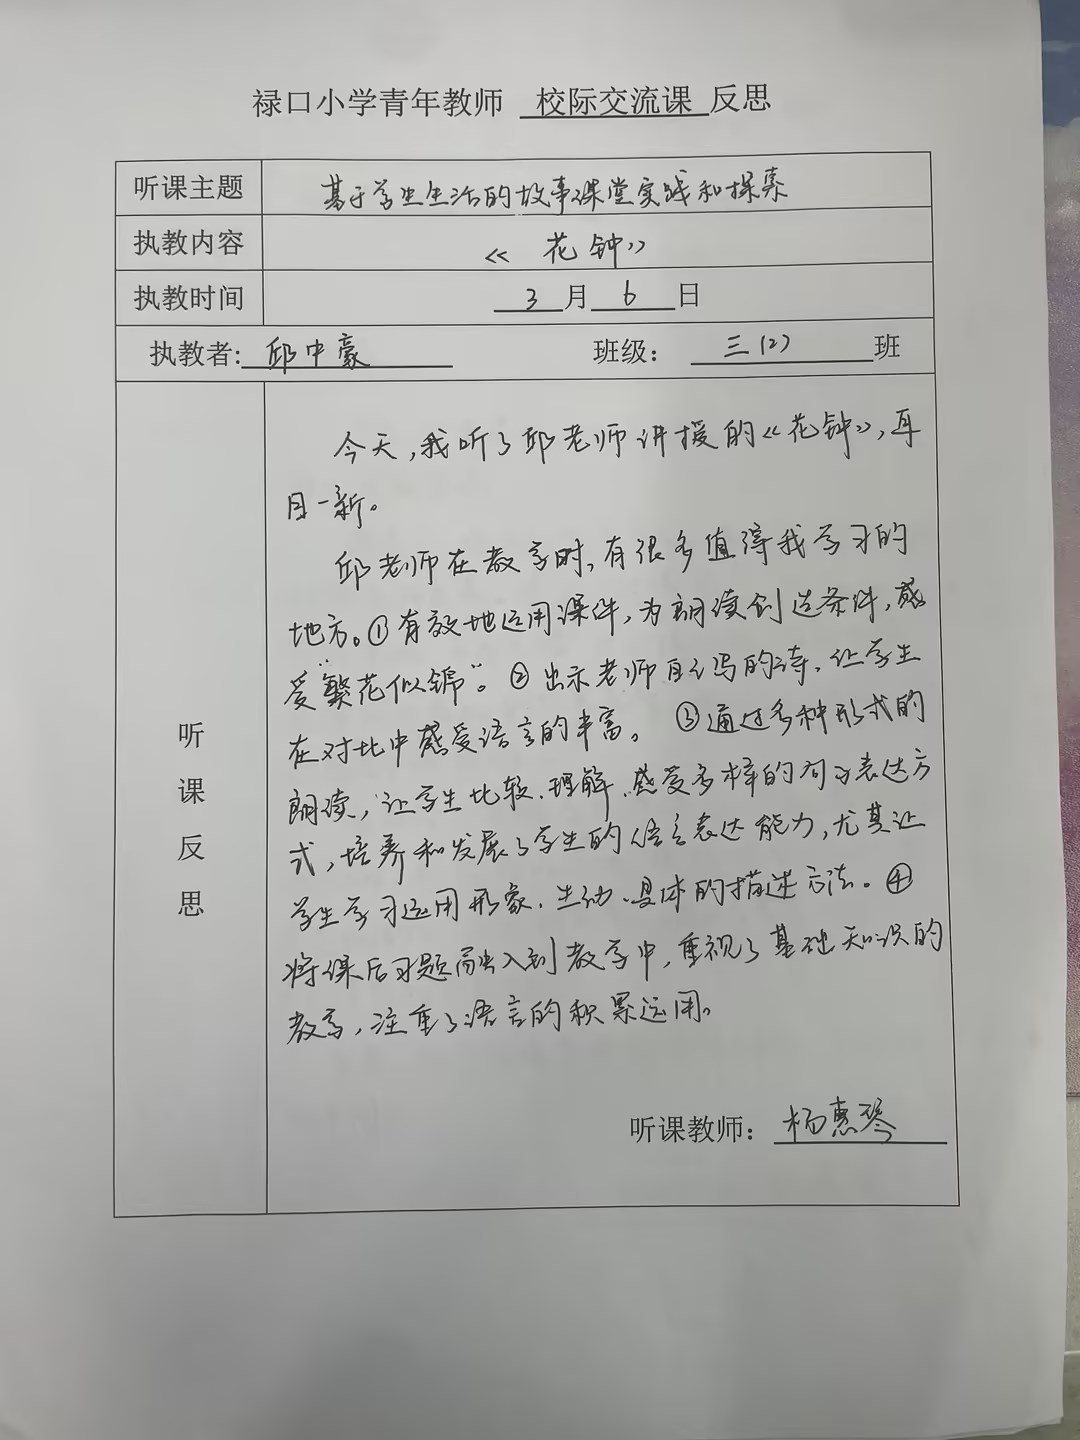 禄口小学青年教师 校际交流课 反思
听课主题 基于学生生活的故事课堂实践和探索
执教内容 《 花钟》
执教时间 3月6日
执教者:邱中豪 班级：三(2)班
听课反思
今天,我听了邱老师讲授的《花钟》,耳
目一新。
邱老师在教学时,有很多值得我学习的
地方。①有效地运用课件,为朗读创造条件,感
受“繁花似锦”。②出示老师自己写的诗,让学生
在对比中感受语言的丰富。③通过多种形式的
朗读,让学生比较、理解、感受多样的句子表达方
式,培养和发展了学生的语言表达能力,尤其让
学生学习运用形象、生动、具体的描述方法。④
将课后习题融入到教学中,重视了基础知识的
教学,注重了语言的积累运用。
听课教师：杨惠琴